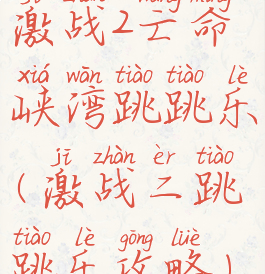 激战2亡命
xiá wān tiào tiào lè
峡湾跳跳乐
jī zhàn èr tiào
(激战二跳
tiào lè gōng lüè
跳乐攻略)